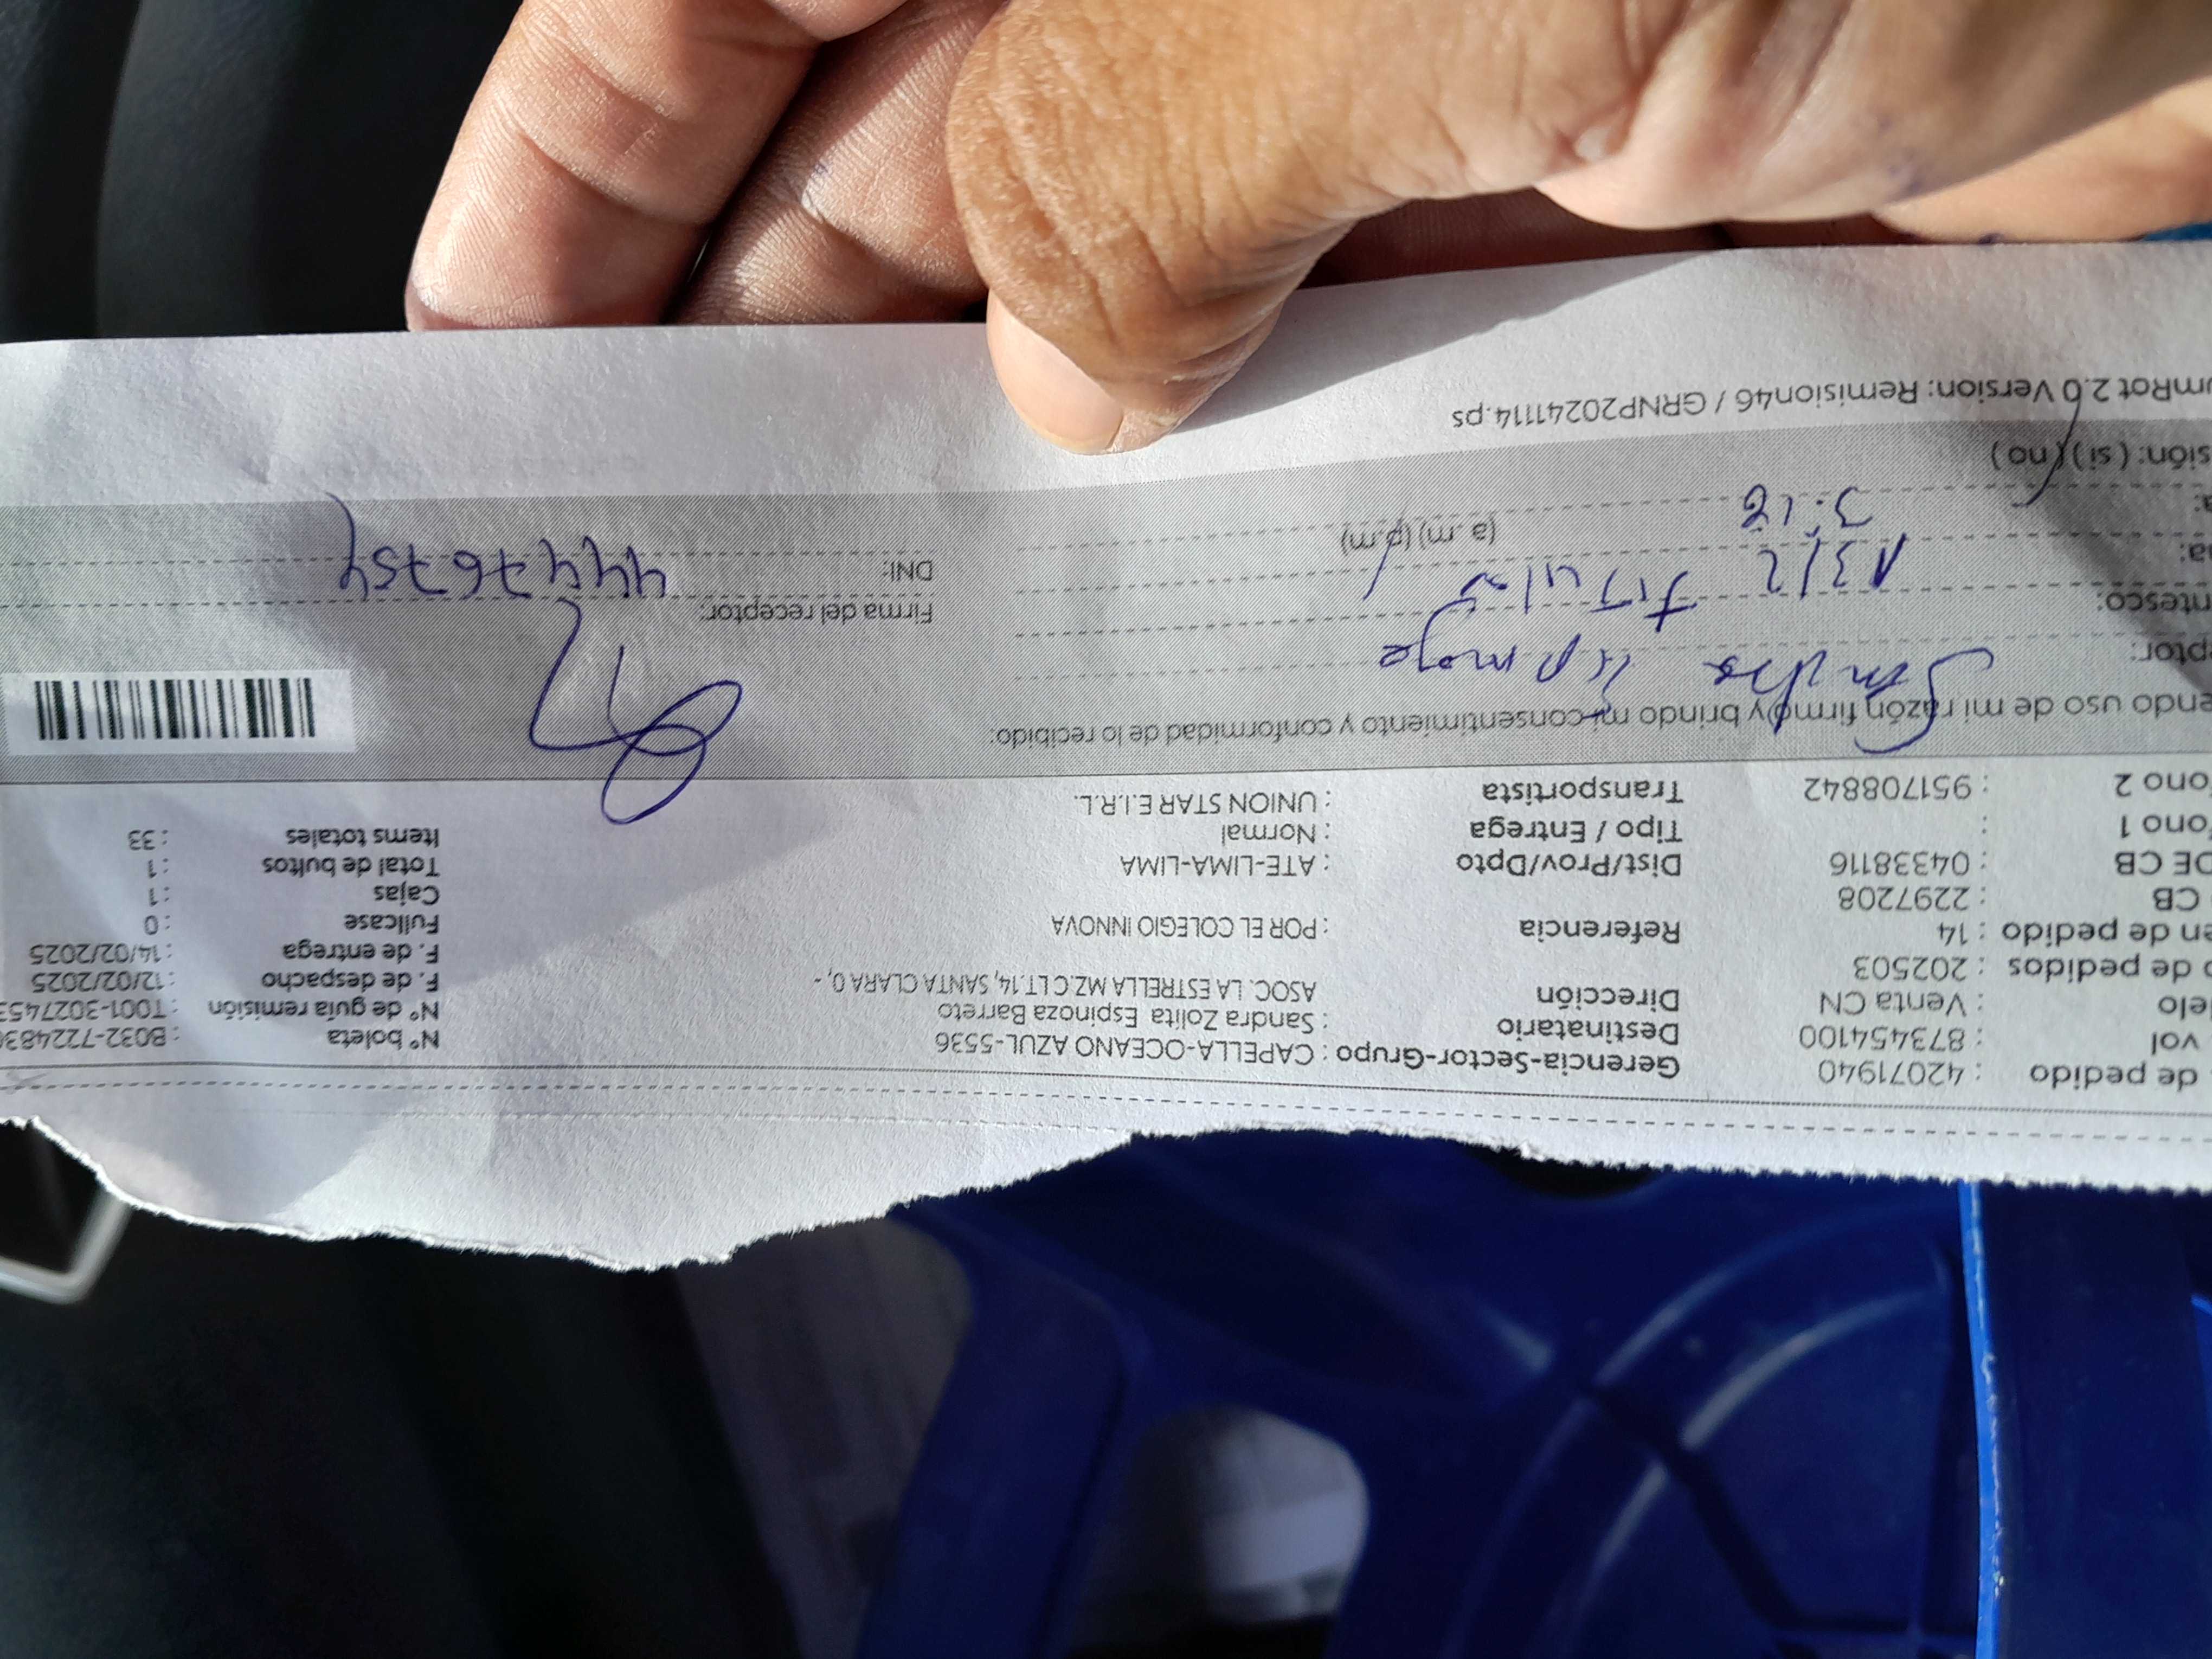 de pedido : 42071940 Gerencia-Sector-Grupo : CAPELLA-OCEANO AZUL-5536 N° boleta : B032-7224830
vol : 873454100 Destinatario : Sandra Zolita Espinoza Barreto N° de guía remisión : T001-3027453
delo : Venta CN Dirección ASOC. LA ESTRELLA MZ.C LT.14, SANTA CLARA 0, - F. de despacho : 12/02/2025
o de pedidos : 202503 F. de entrega : 14/02/2025
en de pedido : 14 Referencia : POR EL COLEGIO INNOVA Fullcase : 0
CB : 2297208 Cajas : 1
DE CB : 04338116 Dist/Prov/Dpto : ATE-LIMA-LIMA Total de bultos : 1
fono 1 : Tipo / Entrega : Normal Items totales : 33
fono 2 : 951708842 Transportista : UNION STAR E.I.R.L.
endo uso de mi razón firmo y brindo mi consentimiento y conformidad de lo recibido:
ptor: Sandra
ntesco: Titular Firma del receptor:
na: 13/2 DNI: 44476754
a: 3:18 (a.m) (p.m)
sión: ( si ) ( no )
mRot 2.0 Version: Remision46 / GRNP20241114.ps